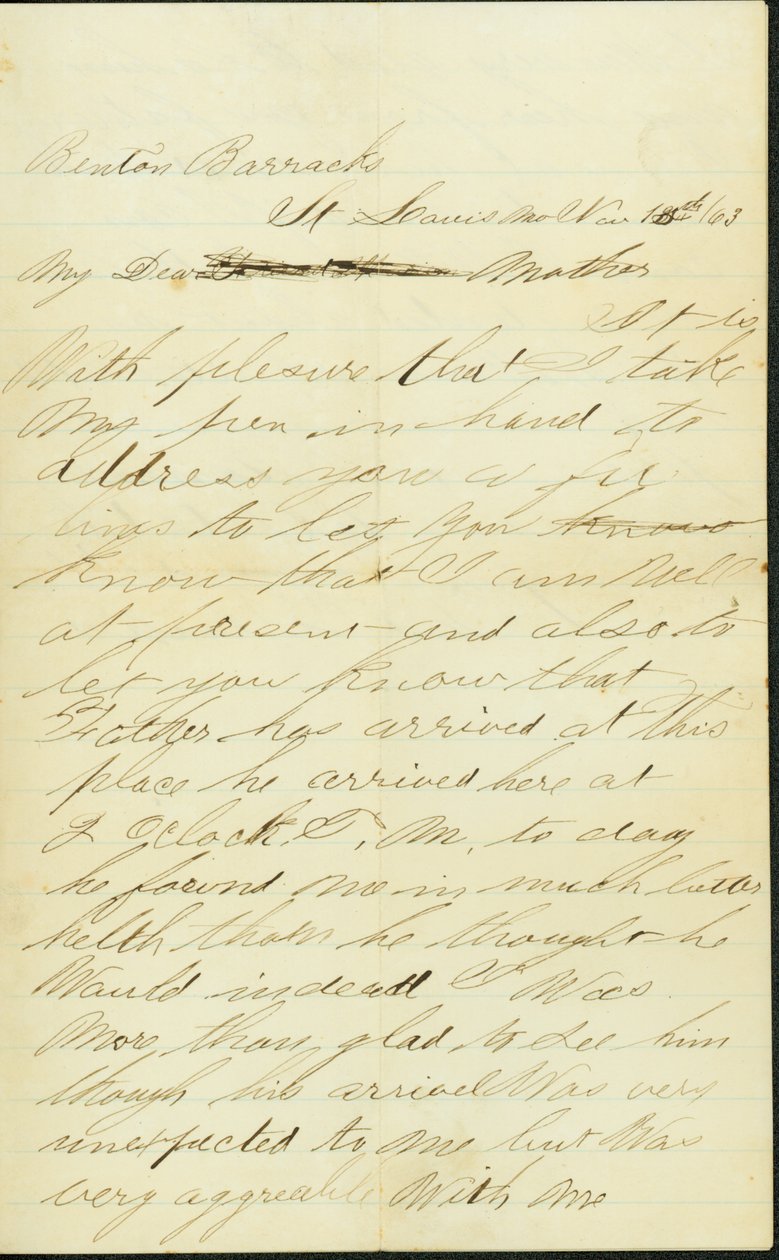 Benton Barracks
St Louis Mo Nov 18th /63
My Dear Mother
It is
With plesure that I take
My pen in hand to
address you a few
lines to let you know
know that I am Well
at present and also to
let you know that
Father has arrived at this
place he arrived here at
2 Oclock. P, M, to day
he found me in much better
helth than he thought he
Would indeed I Was
More than glad to see him
though his arrivel Was very
unexpected to me but Was
very aggreable With me